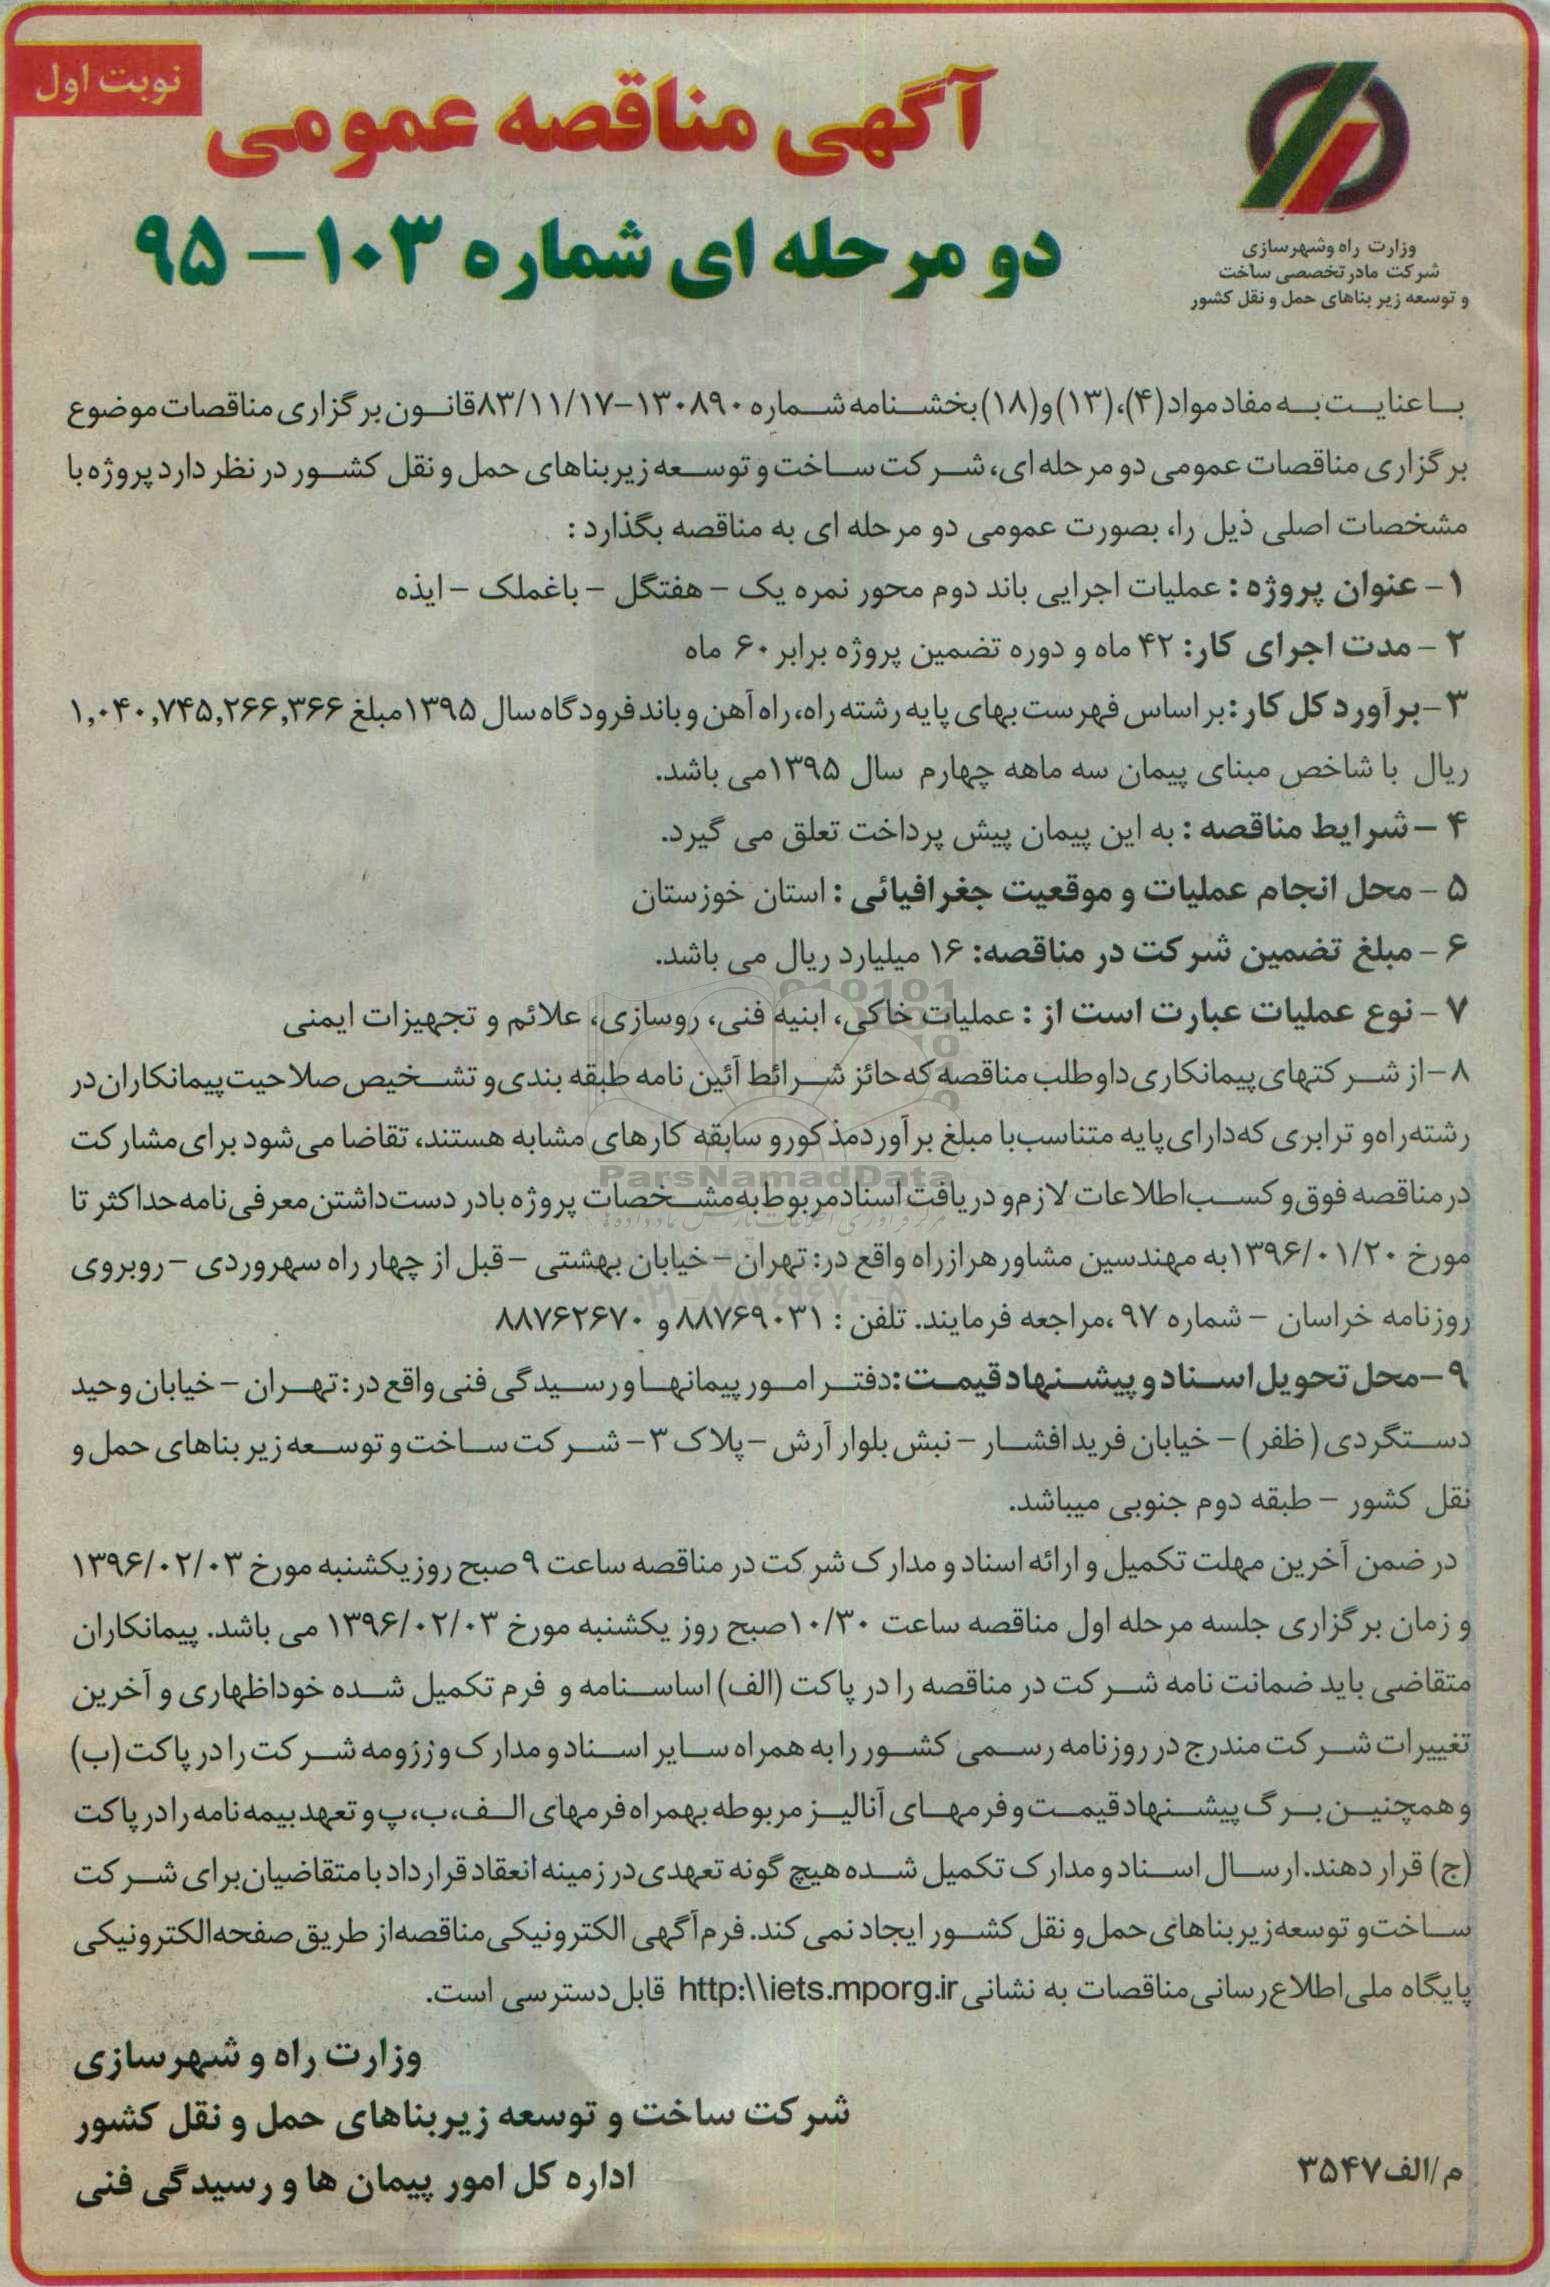 نوبت اول
آگهی مناقصه عمومی
دو مرحله ای شماره ۱۰۳ – ۹۵
وزارت راه وشهرسازی
شرکت مادر تخصصی ساخت
و توسعه زیر بناهای حمل و نقل کشور
با عنایت به مفاد مواد (۴)، (۱۳) و (۱۸) بخشنامه شماره ۱۳۰۸۹۰-۸۳/۱۱/۱۷ قانون برگزاری مناقصات موضوع
برگزاری مناقصات عمومی دو مرحله ای، شرکت ساخت و توسعه زیربناهای حمل و نقل کشور در نظر دارد پروژه با
مشخصات اصلی ذیل را، بصورت عمومی دو مرحله ای به مناقصه بگذارد :
۱- عنوان پروژه : عملیات اجرایی باند دوم محور نمره یک – هفتگل – باغملک – ایذه
۲ – مدت اجرای کار: ۴۲ ماه و دوره تضمین پروژه برابر ۶۰ ماه
۳-برآورد کل کار: بر اساس فهرست بهای پایه رشته راه، راه آهن و باند فرودگاه سال ۱۳۹۵ مبلغ ۱,۰۴۰,۷۴۵,۲۶۶,۳۶۶
ریال با شاخص مبنای پیمان سه ماهه چهارم سال ۱۳۹۵ می باشد.
۴ – شرایط مناقصه : به این پیمان پیش پرداخت تعلق می گیرد.
۵ – محل انجام عملیات و موقعیت جغرافیائی : استان خوزستان
۶ – مبلغ تضمین شرکت در مناقصه: ۱۶ میلیارد ریال می باشد.
۷ – نوع عملیات عبارت است از : عملیات خاکی، ابنیه فنی، روسازی، علائم و تجهیزات ایمنی
۸-از شرکتهای پیمانکاری داوطلب مناقصه که حائز شرائط آئین نامه طبقه بندی و تشخیص صلاحیت پیمانکاران در
رشته راه و ترابری که دارای پایه متناسب با مبلغ برآورد مذکور و سابقه کارهای مشابه هستند، تقاضا می شود برای مشارکت
در مناقصه فوق و کسب اطلاعات لازم و دریافت اسناد مربوط به مشخصات پروژه با در دست داشتن معرفی نامه حداکثر تا
مورخ ۱۳۹۶/۰۱/۲۰ به مهندسین مشاور هرازراه واقع در: تهران – خیابان بهشتی – قبل از چهار راه سهروردی – روبروی
روزنامه خراسان – شماره ۹۷ ،مراجعه فرمایند. تلفن : ۸۸۷۶۹۰۳۱ و ۸۸۷۶۲۶۷۰
۹-محل تحویل اسناد و پیشنهاد قیمت: دفتر امور پیمانها و رسیدگی فنی واقع در: تهران – خیابان وحید
دستگردی (ظفر) – خیابان فرید افشار – نبش بلوار آرش – پلاک ۳ – شرکت ساخت و توسعه زیر بناهای حمل و
نقل کشور – طبقه دوم جنوبی میباشد.
در ضمن آخرین مهلت تکمیل و ارائه اسناد و مدارک شرکت در مناقصه ساعت ۹ صبح روز یکشنبه مورخ ۱۳۹۶/۰۲/۰۳
و زمان برگزاری جلسه مرحله اول مناقصه ساعت ۱۰/۳۰ صبح روز یکشنبه مورخ ۱۳۹۶/۰۲/۰۳ می باشد. پیمانکاران
متقاضی باید ضمانت نامه شرکت در مناقصه را در پاکت (الف) اساسنامه و فرم تکمیل شده خوداظهاری و آخرین
تغییرات شرکت مندرج در روزنامه رسمی کشور را به همراه سایر اسناد و مدارک و رزومه شرکت را در پاکت (ب)
و همچنین برگ پیشنهاد قیمت و فرمهای آنالیز مربوطه بهمراه فرمهای الف، ب، پ و تعهد بیمه نامه را در پاکت
(ج) قرار دهند. ارسال اسناد و مدارک تکمیل شده هیچ گونه تعهدی در زمینه انعقاد قرارداد با متقاضیان برای شرکت
ساخت و توسعه زیربناهای حمل و نقل کشور ایجاد نمی کند. فرم آگهی الکترونیکی مناقصه از طریق صفحه الکترونیکی
پایگاه ملی اطلاع رسانی مناقصات به نشانی http:\\iets.mporg.ir قابل دسترسی است.
وزارت راه و شهرسازی
شرکت ساخت و توسعه زیربناهای حمل و نقل کشور
اداره کل امور پیمان ها و رسیدگی فنی
م/الف ۳۵۴۷
ParsNamadData
۰۲۱-۸۸۳۴۹۶۷۰-۵